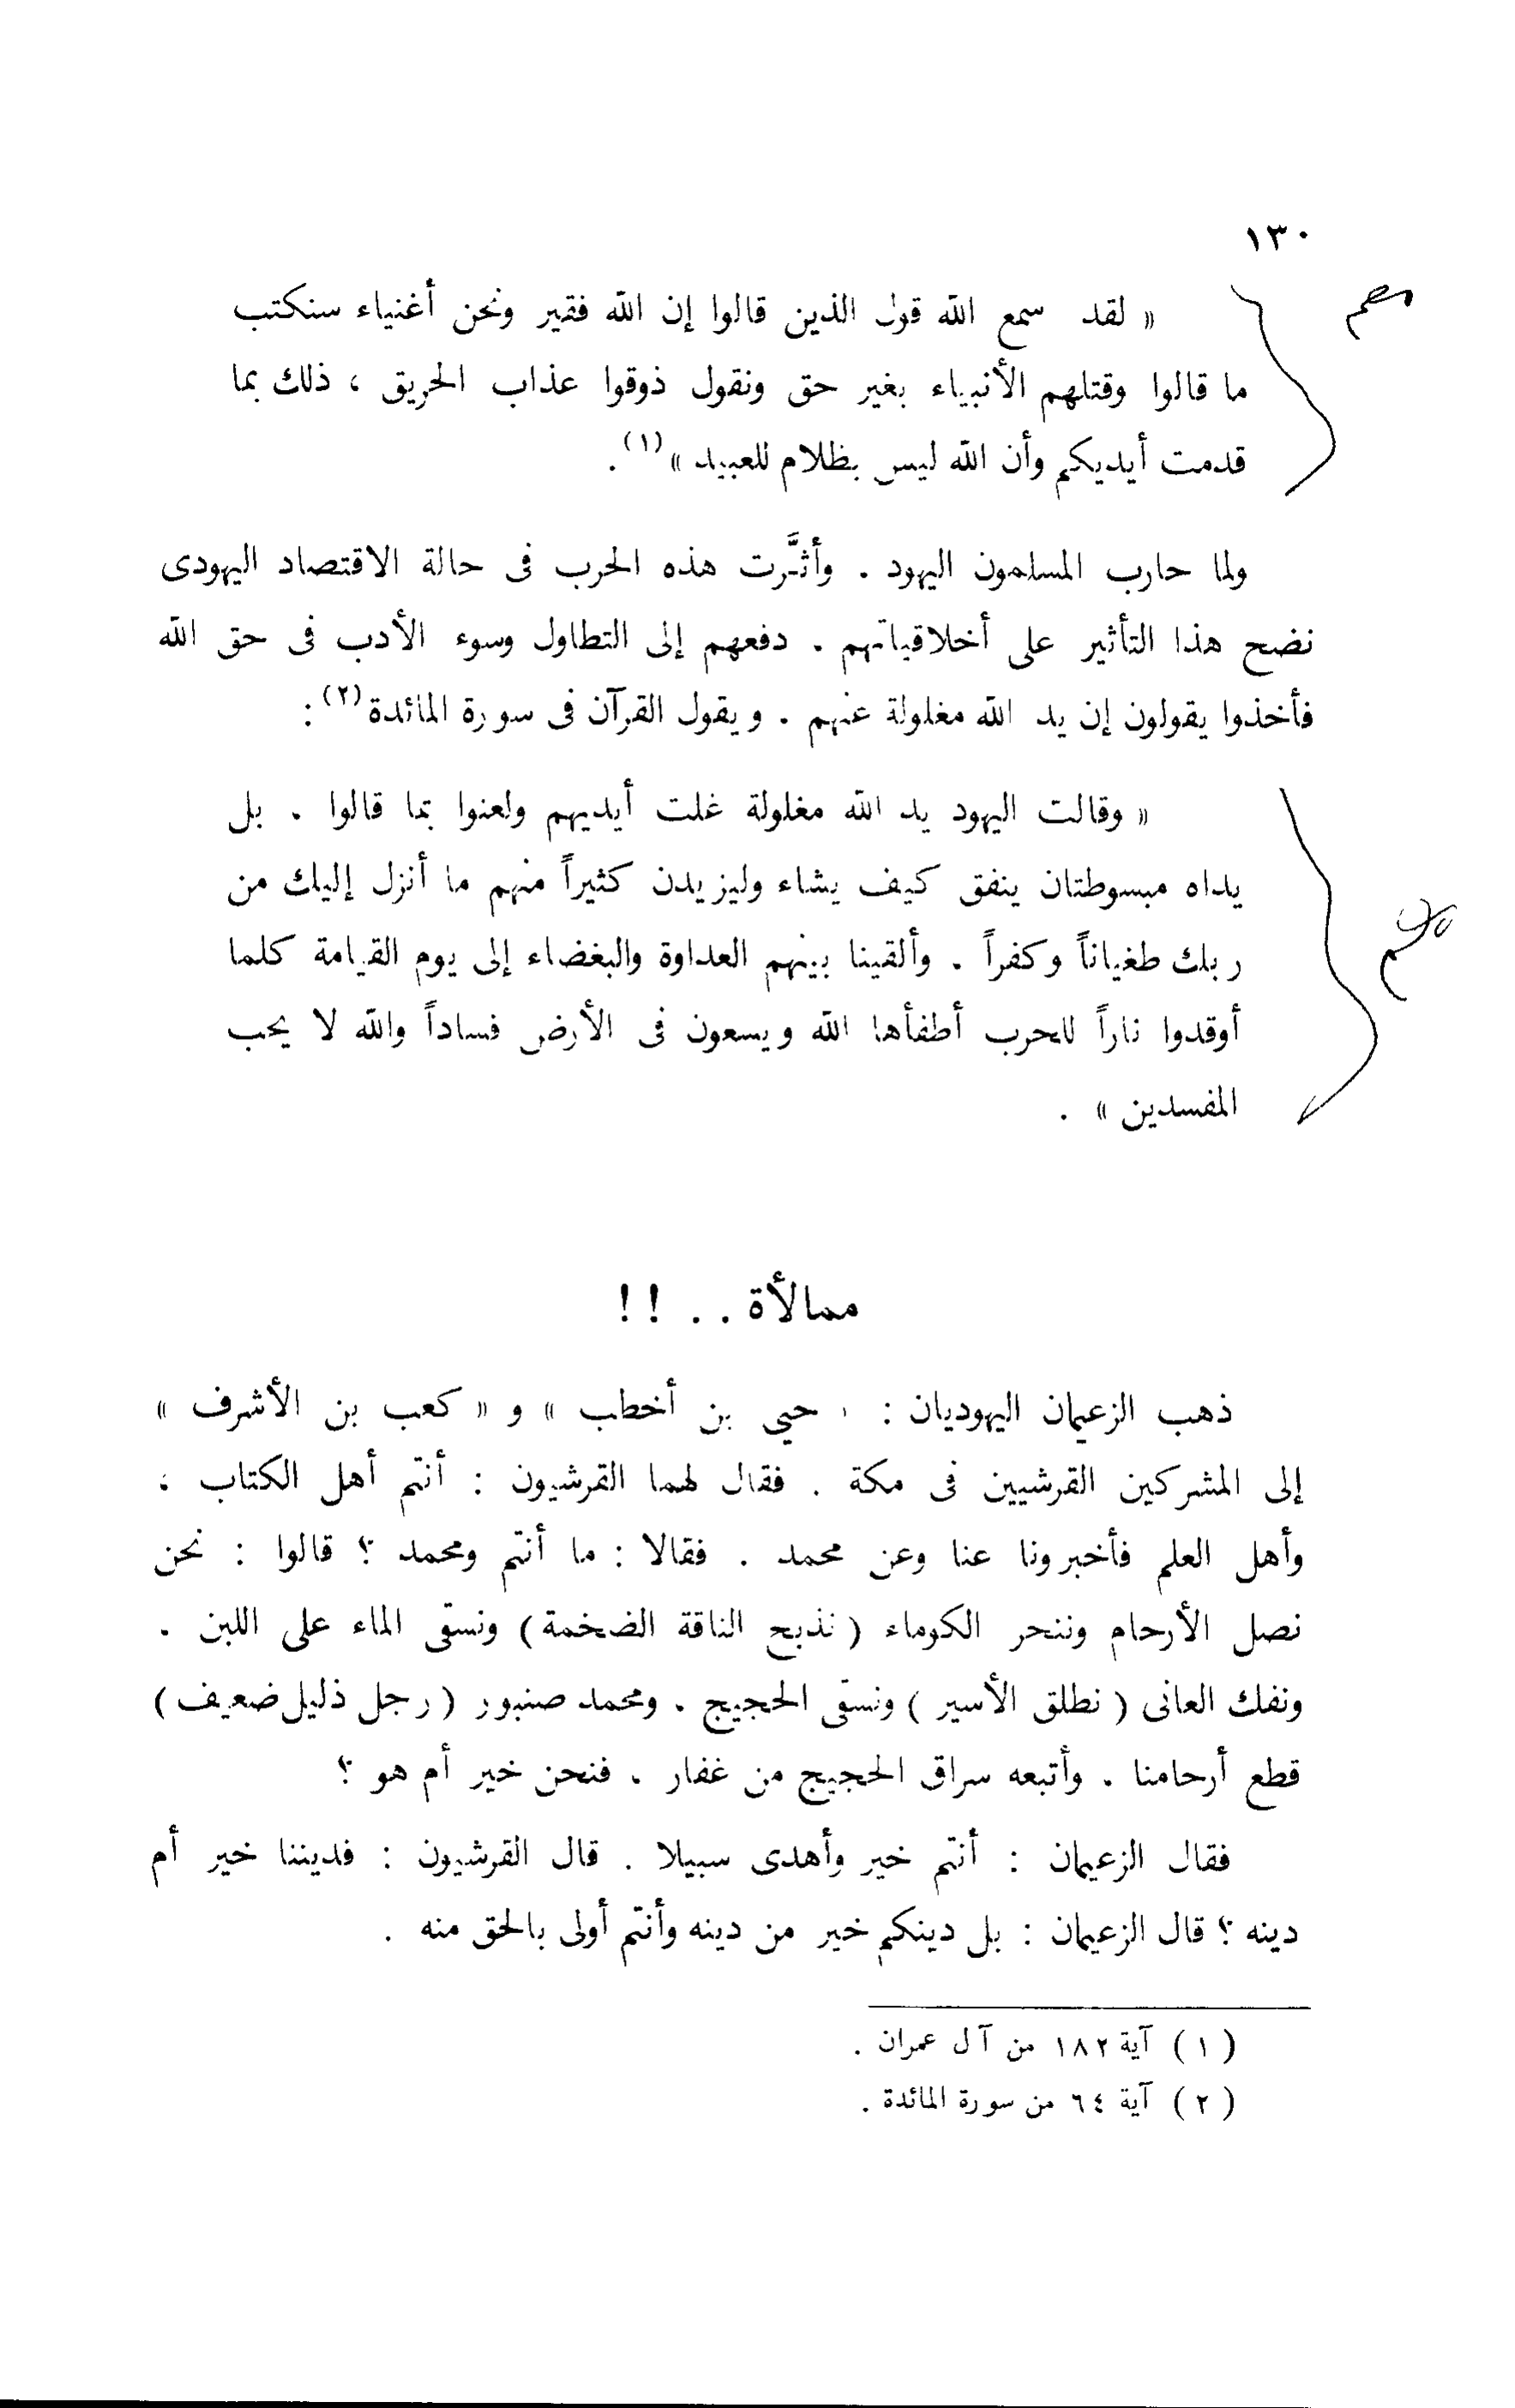 ١٣٠
« لقد سمع الله قول الذين قالوا إن الله فقير ونحن أغنياء سنكتب
ما قالوا وقتلهم الأنبياء بغير حق ونقول ذوقوا عذاب الحريق ، ذلك بما
قدمت أيديكم وأن الله ليس بظلام للعبيد »(١) .
ولما حارب المسلمون اليهود . وأثَّرت هذه الحرب فى حالة الاقتصاد اليهودى
نضح هذا التأثير على أخلاقياتهم . دفعهم إلى التطاول وسوء الأدب فى حق الله
فأخذوا يقولون إن يد الله مغلولة عنهم . ويقول القرآن فى سورة المائدة(٢) :
« وقالت اليهود يد الله مغلولة غلت أيديهم ولعنوا بما قالوا . بل
يداه مبسوطتان ينفق كيف يشاء وليزيدن كثيراً منهم ما أنزل إليك من
ربك طغياناً وكفراً . وألقينا بينهم العداوة والبغضاء إلى يوم القيامة كلما
أوقدوا ناراً للحرب أطفأها الله ويسعون فى الأرض فساداً والله لا يحب
المفسدين » .
ممالأة . . ! !
ذهب الزعيمان اليهوديان : « حيى بن أخطب » و « كعب بن الأشرف »
إلى المشركين القرشيين فى مكة . فقال لهما القرشيون : أنتم أهل الكتاب ،
وأهل العلم فأخبرونا عنا وعن محمد . فقالا : ما أنتم ومحمد ؟ قالوا : نحن
نصل الأرحام وننحر الكوماء ( نذبح الناقة الضخمة ) ونسقى الماء على اللبن .
ونفك العانى ( نطلق الأسير ) ونسقى الحجيج . ومحمد صنبور ( رجل ذليل ضعيف )
قطع أرحامنا . وأتبعه سراق الحجيج من غفار . فنحن خير أم هو ؟
فقال الزعيمان : أنتم خير وأهدى سبيلا . قال القرشيون : فديننا خير أم
دينه ؟ قال الزعيمان : بل دينكم خير من دينه وأنتم أولى بالحق منه .
( ١ ) آية ١٨٢ من آل عمران .
( ٢ ) آية ٦٤ من سورة المائدة .